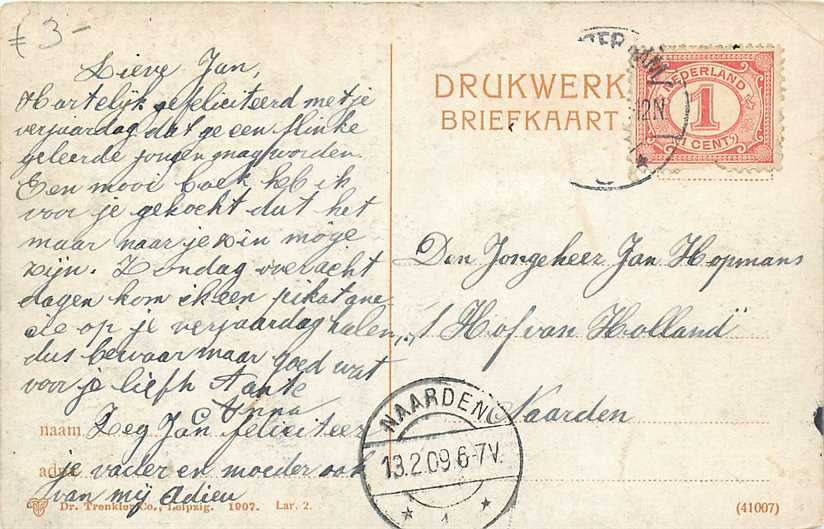 £ 3-
Lieve Jan,
Hartelijk gefeliciteerd met je
verjaardag dat ge een flinke
geleerde jongen mag worden.
Een mooi boek heb ik
voor je gekocht dat het
maar naar je zin moge
zijn. Zondag over acht
dagen kom ik een
op je verjaardag halen,
dus bewaar maar goed wat
voor je liefh Tante
Anna
naam Zeg Jan feliciteer
adres je vader en moeder ook
van mij Adieu
Dr. Trenkler Co., Leipzig. 1907. Lar. 2.
DRUKWERK
BRIEFKAART
NEDERLAND
1
(1 CENT)
12N
Den Jongeheer Jan Hopmans
„'t Hof van Holland"
Naarden
NAARDEN
13.2.09 6-7V.
1
(41007)